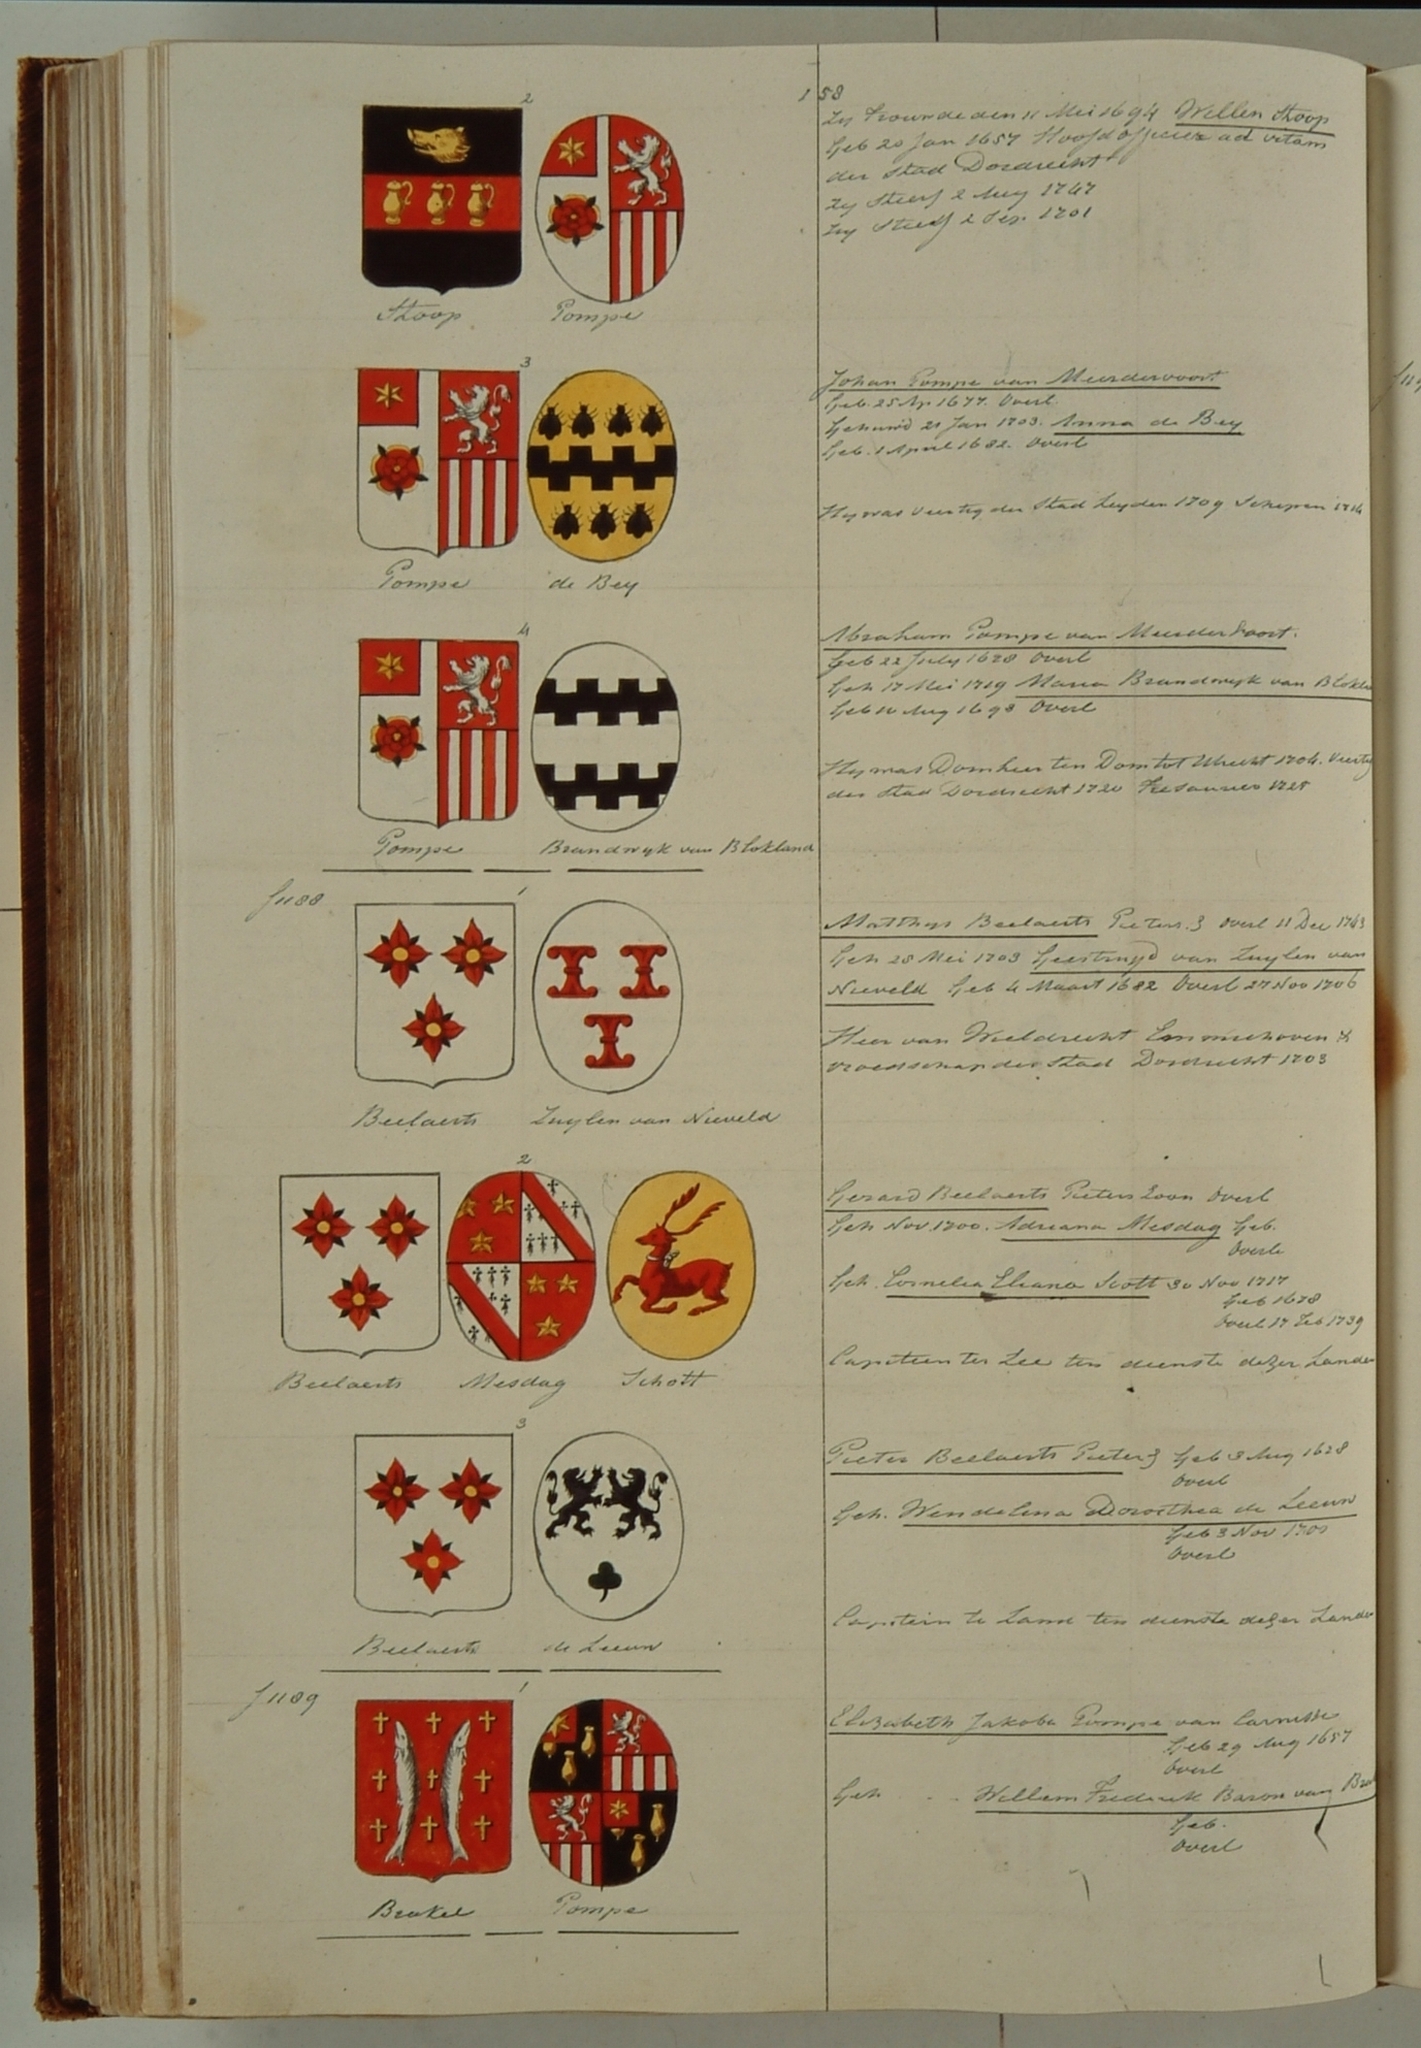 158
2
Zy Trouwde den 11 Mei 1694 Willem Stoop
Geb 20 Jan 1657 Hoofdofficier ad vitam
der Stad Dordrecht
Zy Sterf 2 Aug 1747
Hy Sterf 2 Sep. 1701
Stoop Pompe
3
Johan Pompe van Meerdervoort
Geb. 25 Ap 1677. Overl.
Gehuwd 21 Jan 1703. Anna de Bey
Geb. 1 April 1682. Overl
Hy was Veertig der Stad Leyden 1709 Schepen 1714
Pompe de Bey
4
Abraham Pompe van Meerdervoort.
Geb 22 July 1678 Overl
Geh 17 Mei 1719 Maria Brandwyk van Blokla
Geb 10 Aug 1693 Overl
Hy was Domheer ten Dom tot Utrecht 1704. Veertig
der Stad Dordrecht 1720 Tresaurier
Pompe Brandwyk van Blokland
f 1188
1
Matthys Beelaerts Pieters.z Overl 11 Dec 1743
Geh 28 Mei 1703 Geestruyd van Zuylen van
Nieveld Geb 4 Maart 1682 Overl 27 Nov 1706
Heer van Wieldrecht Emminchoven &
vroedschap der Stad Dordrecht 1703
Beelaerts Zuylen van Nieveld
2
Gerard Beelaerts Pieters Zoon Overl
Geh Nov. 1700. Adriana Mesdag Geb.
Overl.
Geh. Cornelia Eliana Scott 30 Nov 1717
Geb 1678
Overl 17 Feb 1739
Capitein ter Zee ten dienste dezer Lande
Beelaerts Mesdag Schott
3
Pieter Beelaerts Pieterz Geb 3 Aug 1628
Overl
Geh. Wendelina Dorothea de Leeuw
Geb 3 Nov 1701
Overl
Capitein te Land ten dienste dezer Lande
Beelaerts de Leeuw
f 1189
1
Elizabeth Jakoba Pompe van Carnisse
Geb 29 Aug 1657
Overl
Geh . . Willem Frederik Baron van
Geb.
Overl
Brakel Pompe